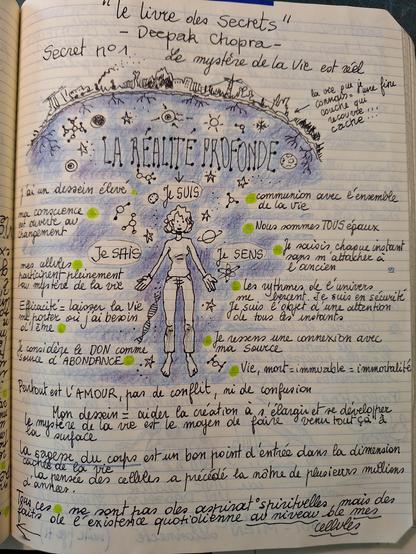 "le livre des Secrets"
- Deepak Chopra -
Secret n°1 Le mystère de la Vie est réel
la vie que je
connais = d'une fine
couche qui
recouvre...
cache...
LA RÉALITÉ PROFONDE
J'ai un dessein élevé
ma conscience
est ouverte au
changement
mes cellules
participent pleinement
au mystère de la vie
Efficacité = laisser la Vie
me porter où j'ai besoin
d'être
Je considère le DON comme
source d'ABONDANCE
Je SUIS
Je SAIS
Je SENS
communion avec l'ensemble
de la vie
Nous sommes TOUS égaux
Je saisis chaque instant
sans m'attacher à
l'ancien
Les rythmes de l'univers
me bercent. Je suis en sécurité
Je suis l'objet d'une attention
de tous les instants
Je ressens une connexion avec
ma Source
Vie, mort = immuable = immortalité
Partout est l'AMOUR, pas de conflit, ni de confusion
Mon dessein = aider la création à s'élargir et se développer
Le mystère de la vie est le moyen de faire venir tout ça à
la surface
La sagesse du corps est un bon point d'entrée dans la dimension
cachée de la vie
La pensée des cellules a précédé la nôtre de plusieurs millions
d'années.
Tous ces ne sont pas des aspirat° spirituelles, mais des
faits de l'existence quotidienne au niveau de mes
cellules